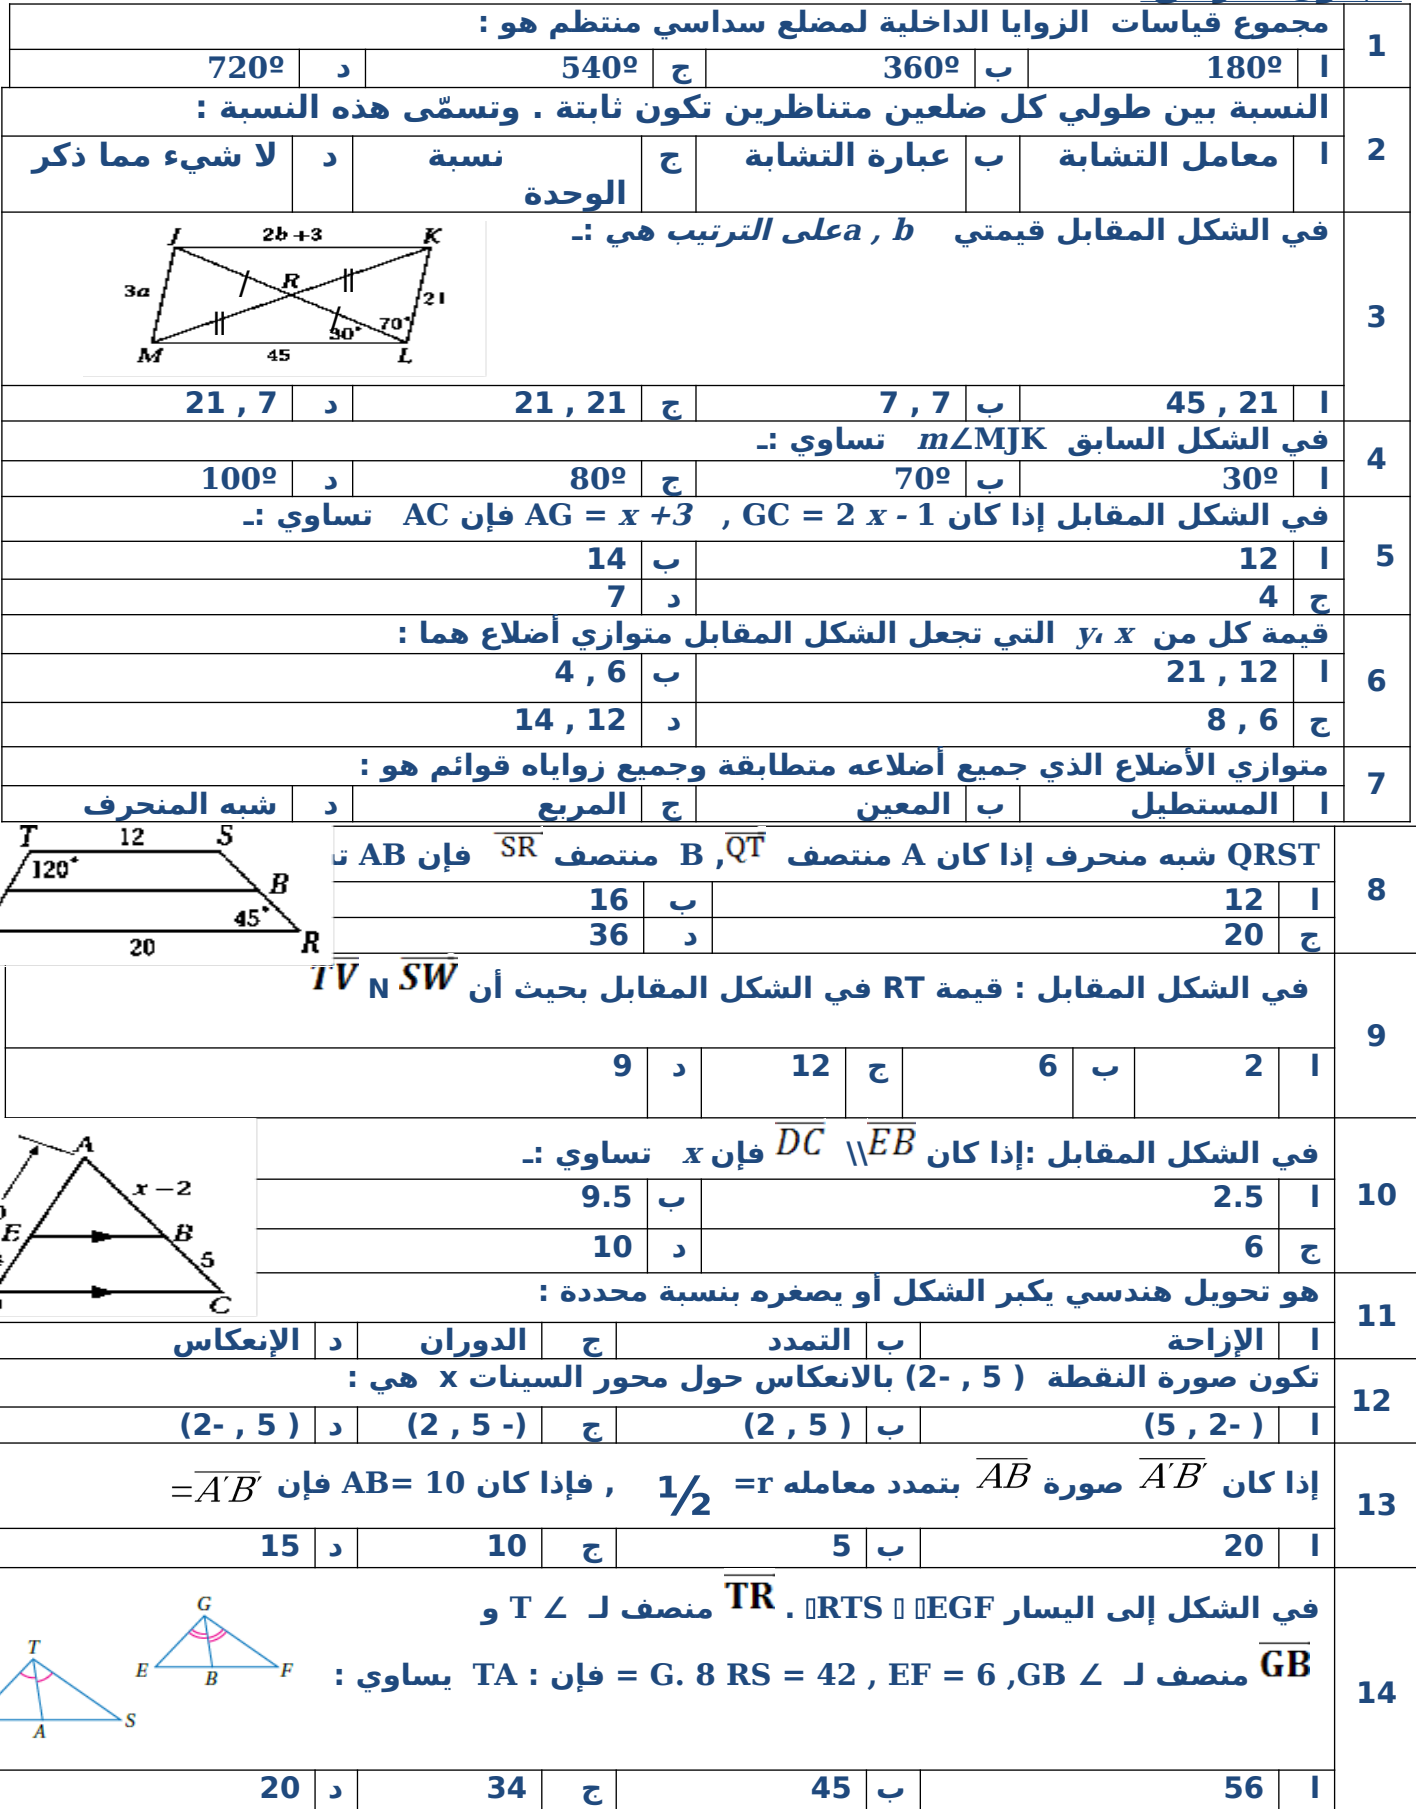 1
مجموع قياسات الزوايا الداخلية لمضلع سداسي منتظم هو :
ا 180º ب 360º ج 540º د 720º
2
النسبة بين طولي كل ضلعين متناظرين تكون ثابتة . وتسمّى هذه النسبة :
ا معامل التشابة ب عبارة التشابة ج نسبة الوحدة د لا شيء مما ذكر
3
في الشكل المقابل قيمتي a , b على الترتيب هي :ـ
J 2b +3 K
3a R 21
30° 70°
M 45 L
ا 45 , 21 ب 7 , 7 ج 21 , 21 د 21 , 7
4
في الشكل السابق m∠MJK تساوي :ـ
ا 30º ب 70º ج 80º د 100º
5
في الشكل المقابل إذا كان AG = x +3 , GC = 2 x - 1 فإن AC تساوي :ـ
ا 12 ب 14
ج 4 د 7
6
قيمة كل من y، x التي تجعل الشكل المقابل متوازي أضلاع هما :
ا 21 , 12 ب 4 , 6
ج 8 , 6 د 14 , 12
7
متوازي الأضلاع الذي جميع أضلاعه متطابقة وجميع زواياه قوائم هو :
ا المستطيل ب المعين ج المربع د شبه المنحرف
8
QRST شبه منحرف إذا كان A منتصف QT , B منتصف SR فإن AB
T 12 S
120°
B
45°
20 R
ا 12 ب 16
ج 20 د 36
9
في الشكل المقابل : قيمة RT في الشكل المقابل بحيث أن SW N TV
ا 2 ب 6 ج 12 د 9
10
في الشكل المقابل :إذا كان EB \\ DC فإن x تساوي :ـ
A
x −2
E B
5
C
ا 2.5 ب 9.5
ج 6 د 10
11
هو تحويل هندسي يكبر الشكل أو يصغره بنسبة محددة :
ا الإزاحة ب التمدد ج الدوران د الإنعكاس
12
تكون صورة النقطة ( 5 , -2) بالانعكاس حول محور السينات x هي :
ا ( -2 , 5) ب ( 5 , 2) ج (- 5 , 2) د ( 5 , -2)
13
إذا كان A′B′ صورة AB بتمدد معامله r= ½ , فإذا كان AB= 10 فإن A′B′=
ا 20 ب 5 ج 10 د 15
14
في الشكل إلى اليسار ▯RTS ▯ ▯EGF . TR منصف لـ ∠ T و
GB منصف لـ ∠ G. 8 RS = 42 , EF = 6 ,GB = فإن : TA يساوي :
G
E B F
T
A S
ا 56 ب 45 ج 34 د 20